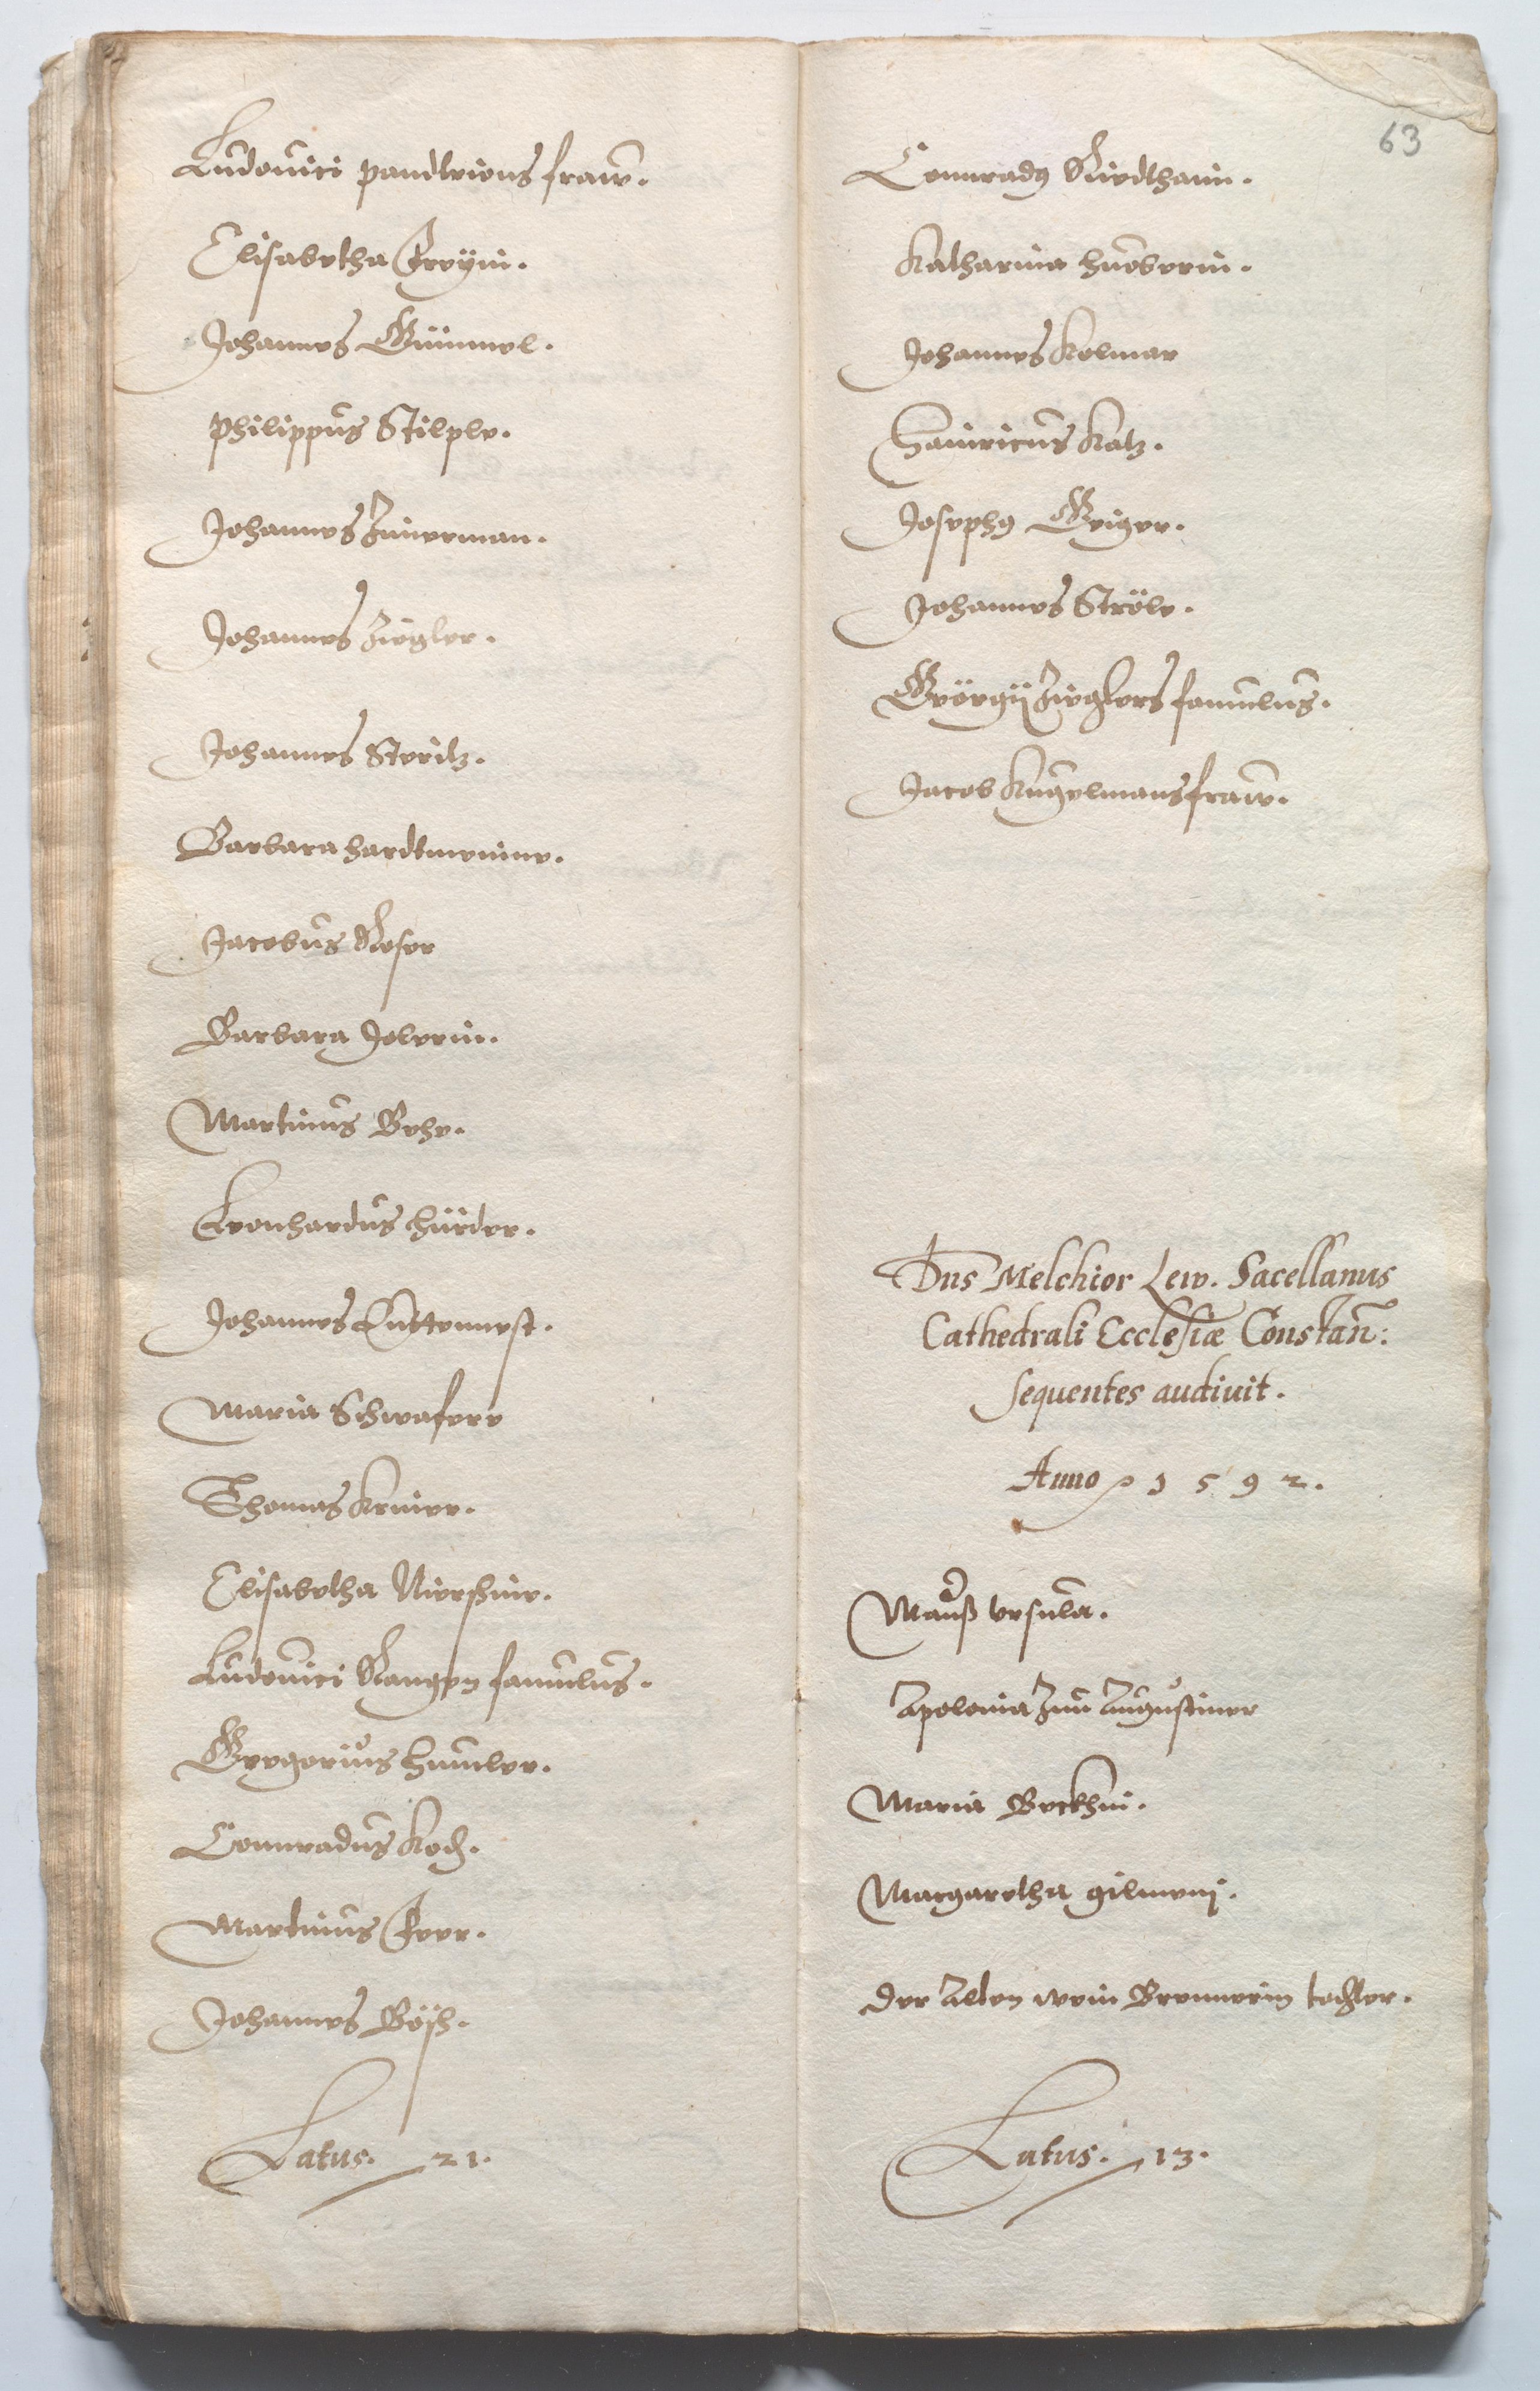 Ludouici pandleions fraw.
Elisabetha Freyin.
Johannes Gümmel.
Philippus Stilple.
Johannes Zimerman.
Johannes Ziegler.
Johannes Steritz.
Barbara Hardtmenine.
Jacobus Roser
Barbara Jolerin.
Martinus Behe.
Leonhardus Hürder.
Johannes Luttemest.
Maria Schwaferr
Thomas Kreier.
Elisabetha
Ludouici Rangen famulus.
Gregorius Humler.
Connradus Koch.
Martinus Frer.
Johannes Bösch.
Latus. 21.
63
Connradus Riedthaim.
Katharina Huoberin.
Johannes Kolmar
Hainricus Katz.
Josephus Geiger.
Johannes Ströle.
Geörgij Zieglers famulus.
Jacob Kugelmans fraw.
Dns Melchior Lew. Sacellanus
Cathedrali Ecclesiæ Constan:
sequentes audiuit.
Anno 1592.
Mauß vrsula.
Apolonia Zum Augustiner
Maria Beckhin.
Margaretha gilmeni.
Der Alten wein Brennerin tochter.
Latus. 13.